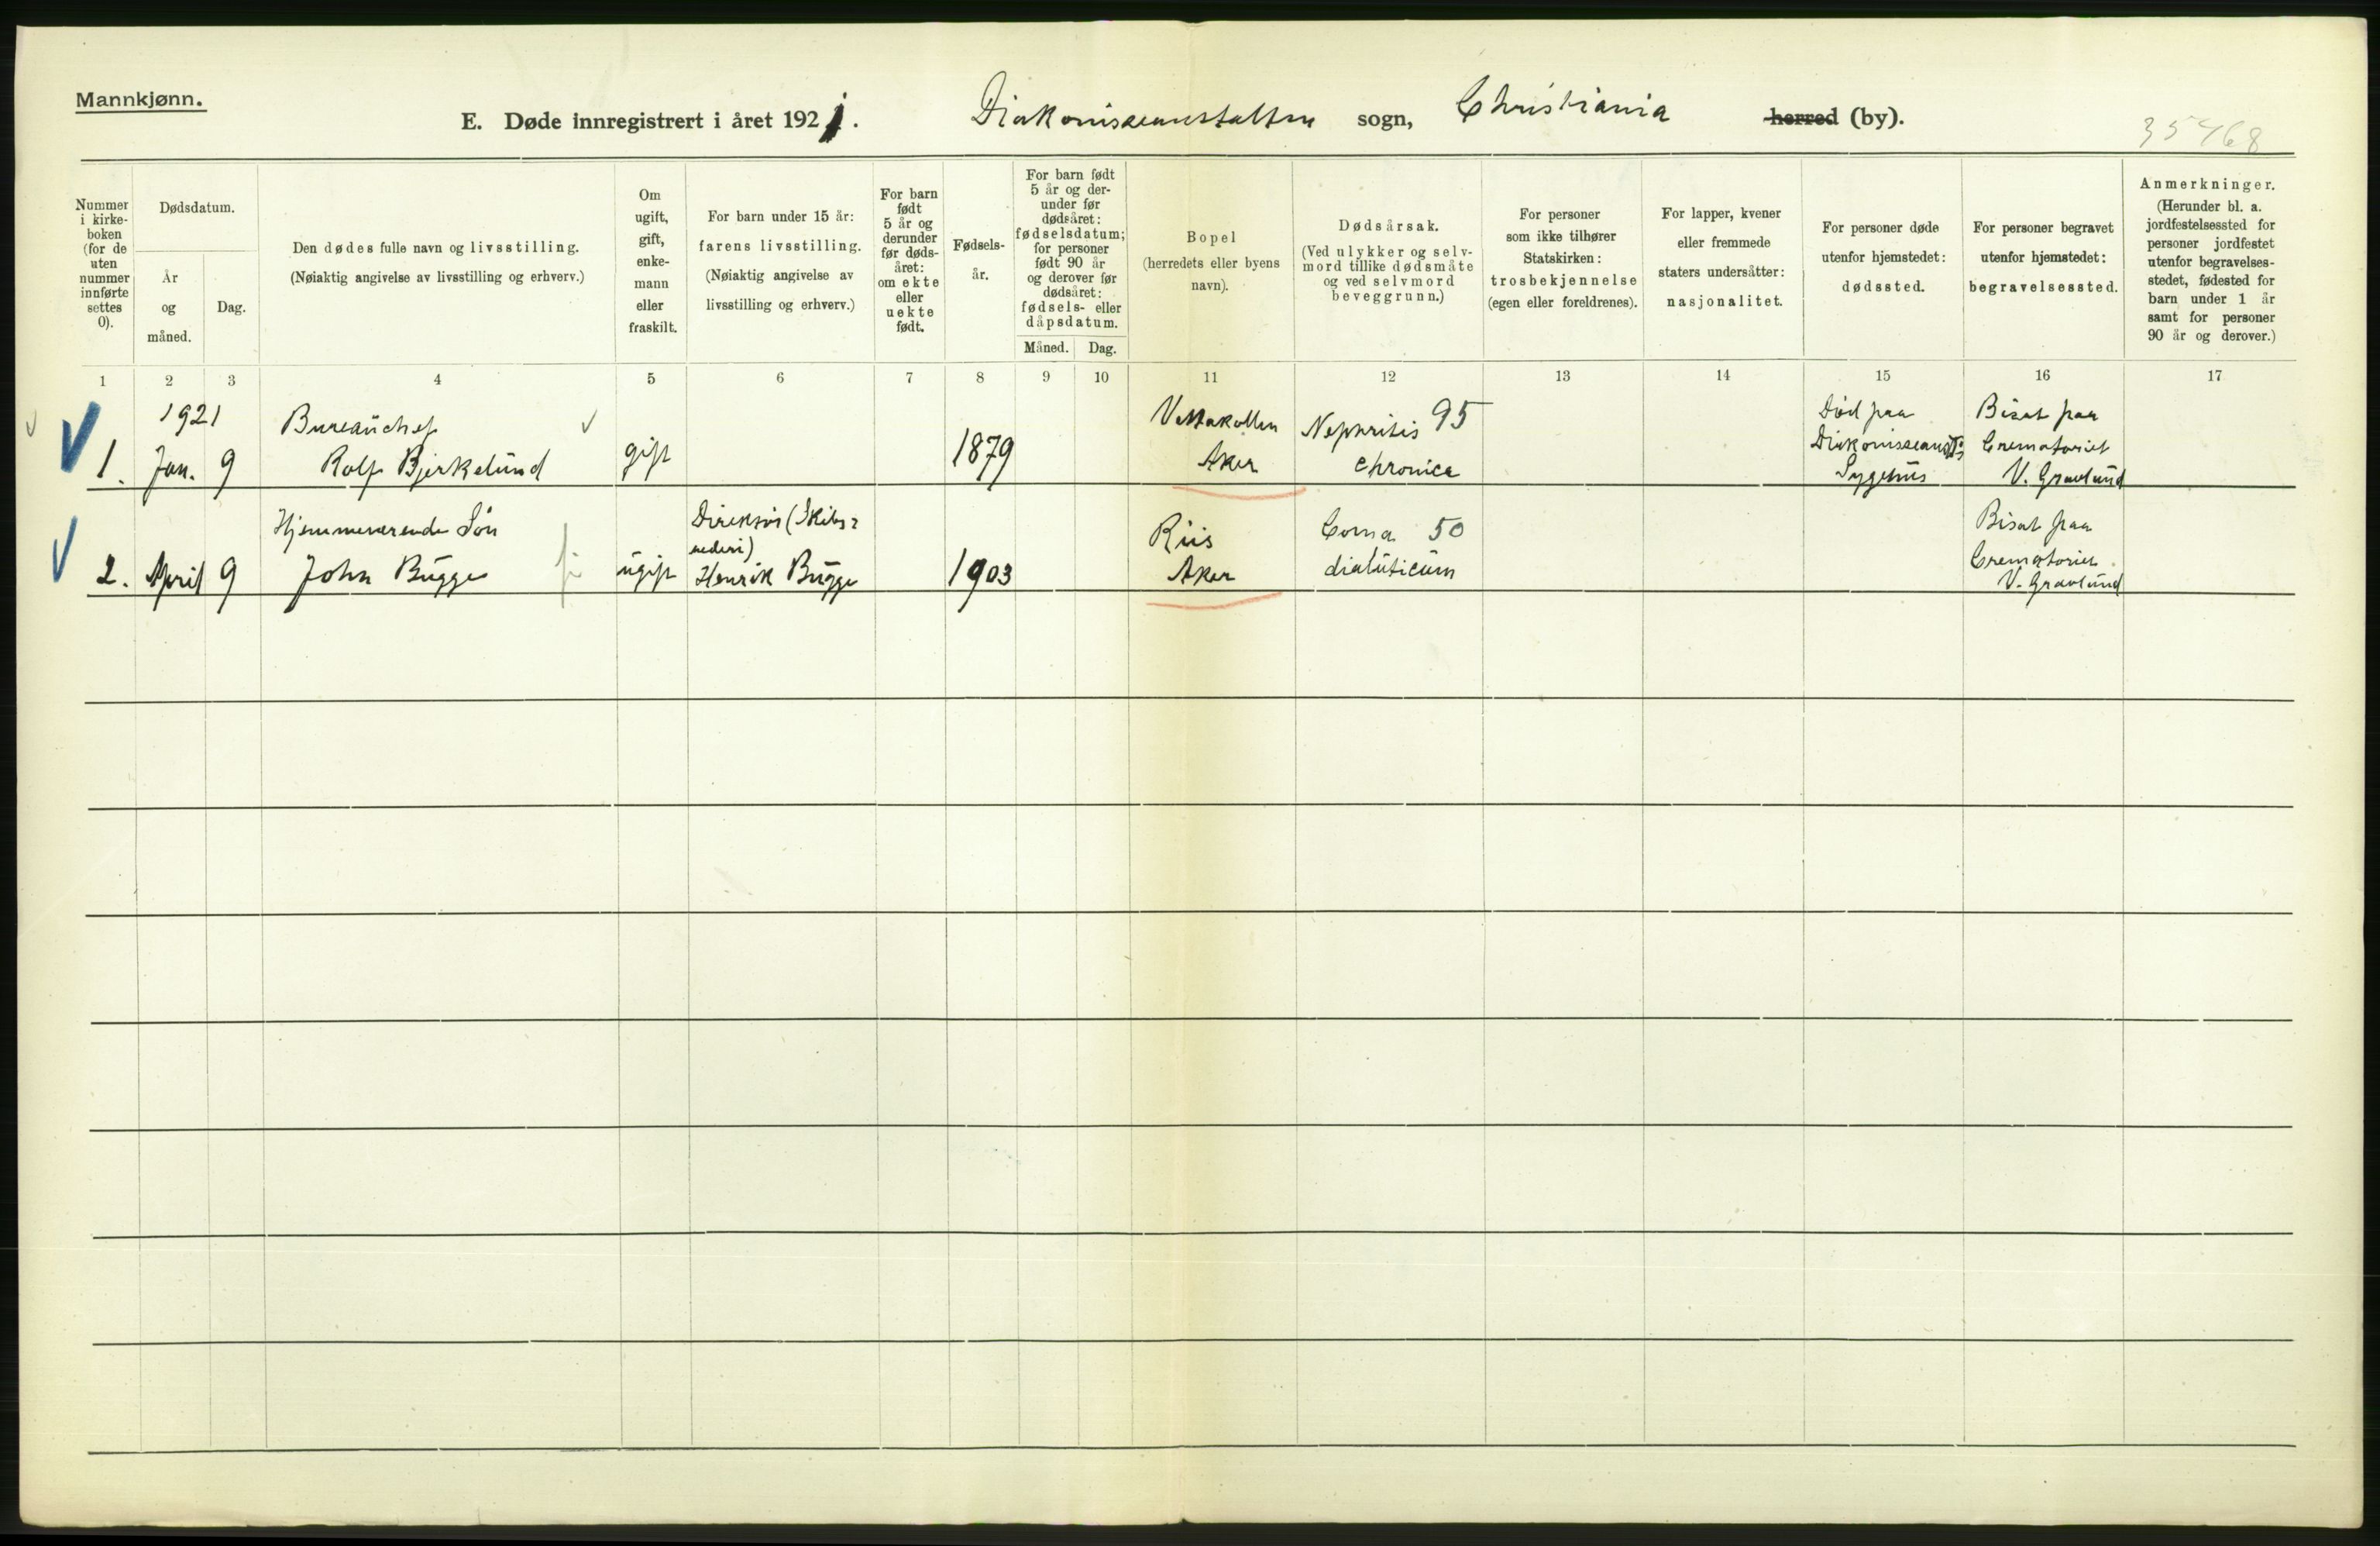 Mannkjønn.
E. Døde innregistrert i året 1921. Diakonisseanstalten sogn, Christiania herred (by).
35468
Nummer i kirke-boken (for de uten nummer innførte settes 0).
Dødsdatum.
År og måned.
Dag.
Den dødes fulle navn og livsstilling.
(Nøiaktig angivelse av livsstilling og erhverv.)
Om ugift, gift, enke-mann eller fraskilt.
For barn under 15 år:
farens livsstilling.
(Nøiaktig angivelse av livsstilling og erhverv.)
For barn født 5 år og derunder før døds-året: om ekte eller uekte født.
Fødsels-år.
For barn født 5 år og der-under før dødsåret: fødselsdatum; for personer født 90 år og derover før dødsåret: fødsels- eller dåpsdatum.
Måned. Dag.
Bopel
(herredets eller byens navn).
Dødsårsak.
(Ved ulykker og selv-mord tillike dødsmåte og ved selvmord beveggrunn.)
For personer som ikke tilhører Statskirken: trosbekjennelse (egen eller foreldrenes).
For lapper, kvener eller fremmede staters undersåtter: nasjonalitet.
For personer døde utenfor hjemstedet: dødssted.
For personer begravet utenfor hjemstedet: begravelsessted.
Anmerkninger.
(Herunder bl. a. jordfestelsessted for personer jordfestet utenfor begravelses-stedet, fødested for barn under 1 år samt for personer 90 år og derover.)
1 2 3 4 5 6 7 8 9 10 11 12 13 14 15 16 17
1921 Bureauchef Vettakollen Nephritis 95 Død paa Bisat paa
1. Jan. 9 Rolf Bjerkelund gift 1879 Aker chronica Diakonisseanst: Crematoriet
Sygehus V. Gravlund
Hjemmeværende Søn Direktør (Skibs= Riis Coma 50 Bisat paa
rederi) Crematoriet
2. April 9 John Bugge ugift Henrik Bugge 1903 Aker diabeticum V. Gravlund